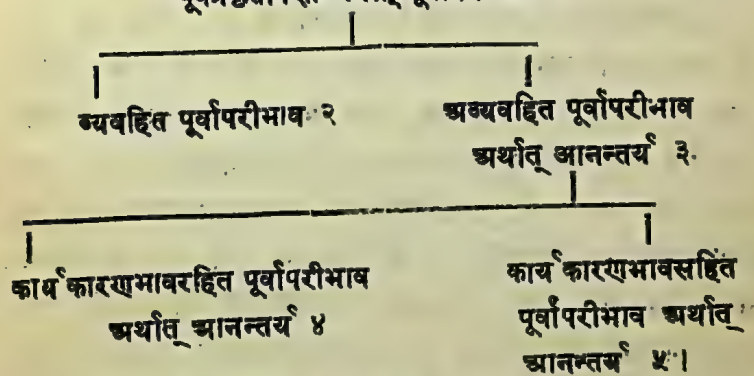 व्यवहित पूर्वापरीभाव २
अव्यवहित पूर्वापरीभाव
अर्थात् आनन्तर्य ३.
कार्यकारणभावरहित पूर्वापरीभाव
अर्थात् आनन्तर्य ४
कार्यकारणभावसहित
पूर्वापरीभाव अर्थात्
आनन्तर्य ५।